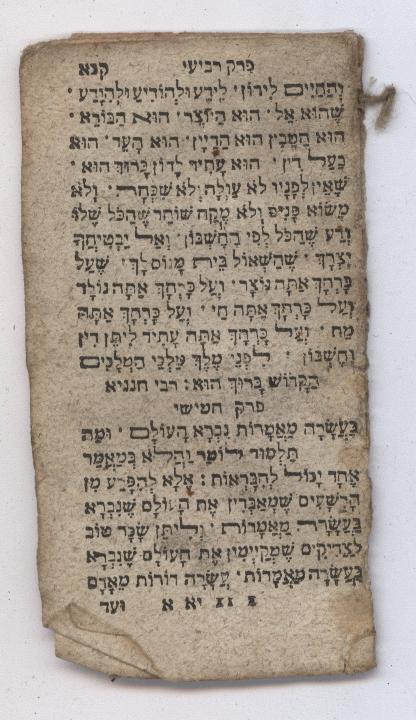 פרק רביעי קנא
וְהַחַיִּים לִידוֹן׳ לֵידַע וּלְהוֹדִיעַ וּלְהִוָּדַע׳
שֶׁהוּא אֵל׳ הוּא הַיּוֹצֵר׳ הוּא הַבּוֹרֵא׳
הוּא הַמֵּבִין הוּא הַדַּיָּין׳ הוּא הָעֵד׳ הוּא
בַּעַל דִּין׳ הוּא עָתִיד לָדוּן בָּרוּךְ הוּא׳
שֶׁאֵין לְפָנָיו לֹא עַוְלָה וְלֹא שִׁכְחָה׳ וְלֹא
מַשּׂוֹא פָנִים וְלֹא מֶקַח שׁוֹחַד שֶׁהַכֹּל שֶׁלּוֹ
וְדַע שֶׁהַכֹּל לְפִי הַחֶשְׁבּוֹן׳ וְאַל יַבְטִיחֲךָ
יִצְרָךְ׳ שֶׁהַשְּׁאוֹל בֵּית מָנוֹס לָךְ׳ שֶׁעַל
כָּרְחָךְ אַתָּה נוֹצָר׳ וְעַל כָּרְחָךְ אַתָּה נוֹלָד
וְעַל כָּרְחָךְ אַתָּה חַי׳ וְעַל כָּרְחָךְ אַתָּה
מֵת׳ וְעַל כָּרְחָךְ אַתָּה עָתִיד לִיתֵּן דִּין
וְחֶשְׁבּוֹן׳ לִפְנֵי מֶלֶךְ מַלְכֵי הַמְּלָכִים
הַקָּדוֹשׁ בָּרוּךְ הוּא: רבי חנניא
פרק חמישי
בַּעֲשָׂרָה מַאֲמָרוֹת נִבְרָא הָעוֹלָם׳ וּמַה
תַּלְמוּד לוֹמַר וַהֲלֹא בְּמַאֲמָר
אֶחָד יָכוֹל לְהִבָּראוֹת: אֶלָּא לְהִפָּרַע מִן
הָרְשָׁעִים שֶׁמְּאַבְּדִין אֶת הָעוֹלָם שֶׁנִּבְרָא
בַּעֲשָׂרָה מַאֲמָרוֹת׳ וְלִיתֵּן שָׂכָר טוֹב
לַצַּדִּיקִים שֶׁמְּקַיְּימִין אֶת הָעוֹלָם שֶׁנִּבְרָא
בַּעֲשָׂרָה מַאֲמָרוֹת׳ עֲשָׂרָה דוֹרוֹת מֵאָדָם
יא א ועד